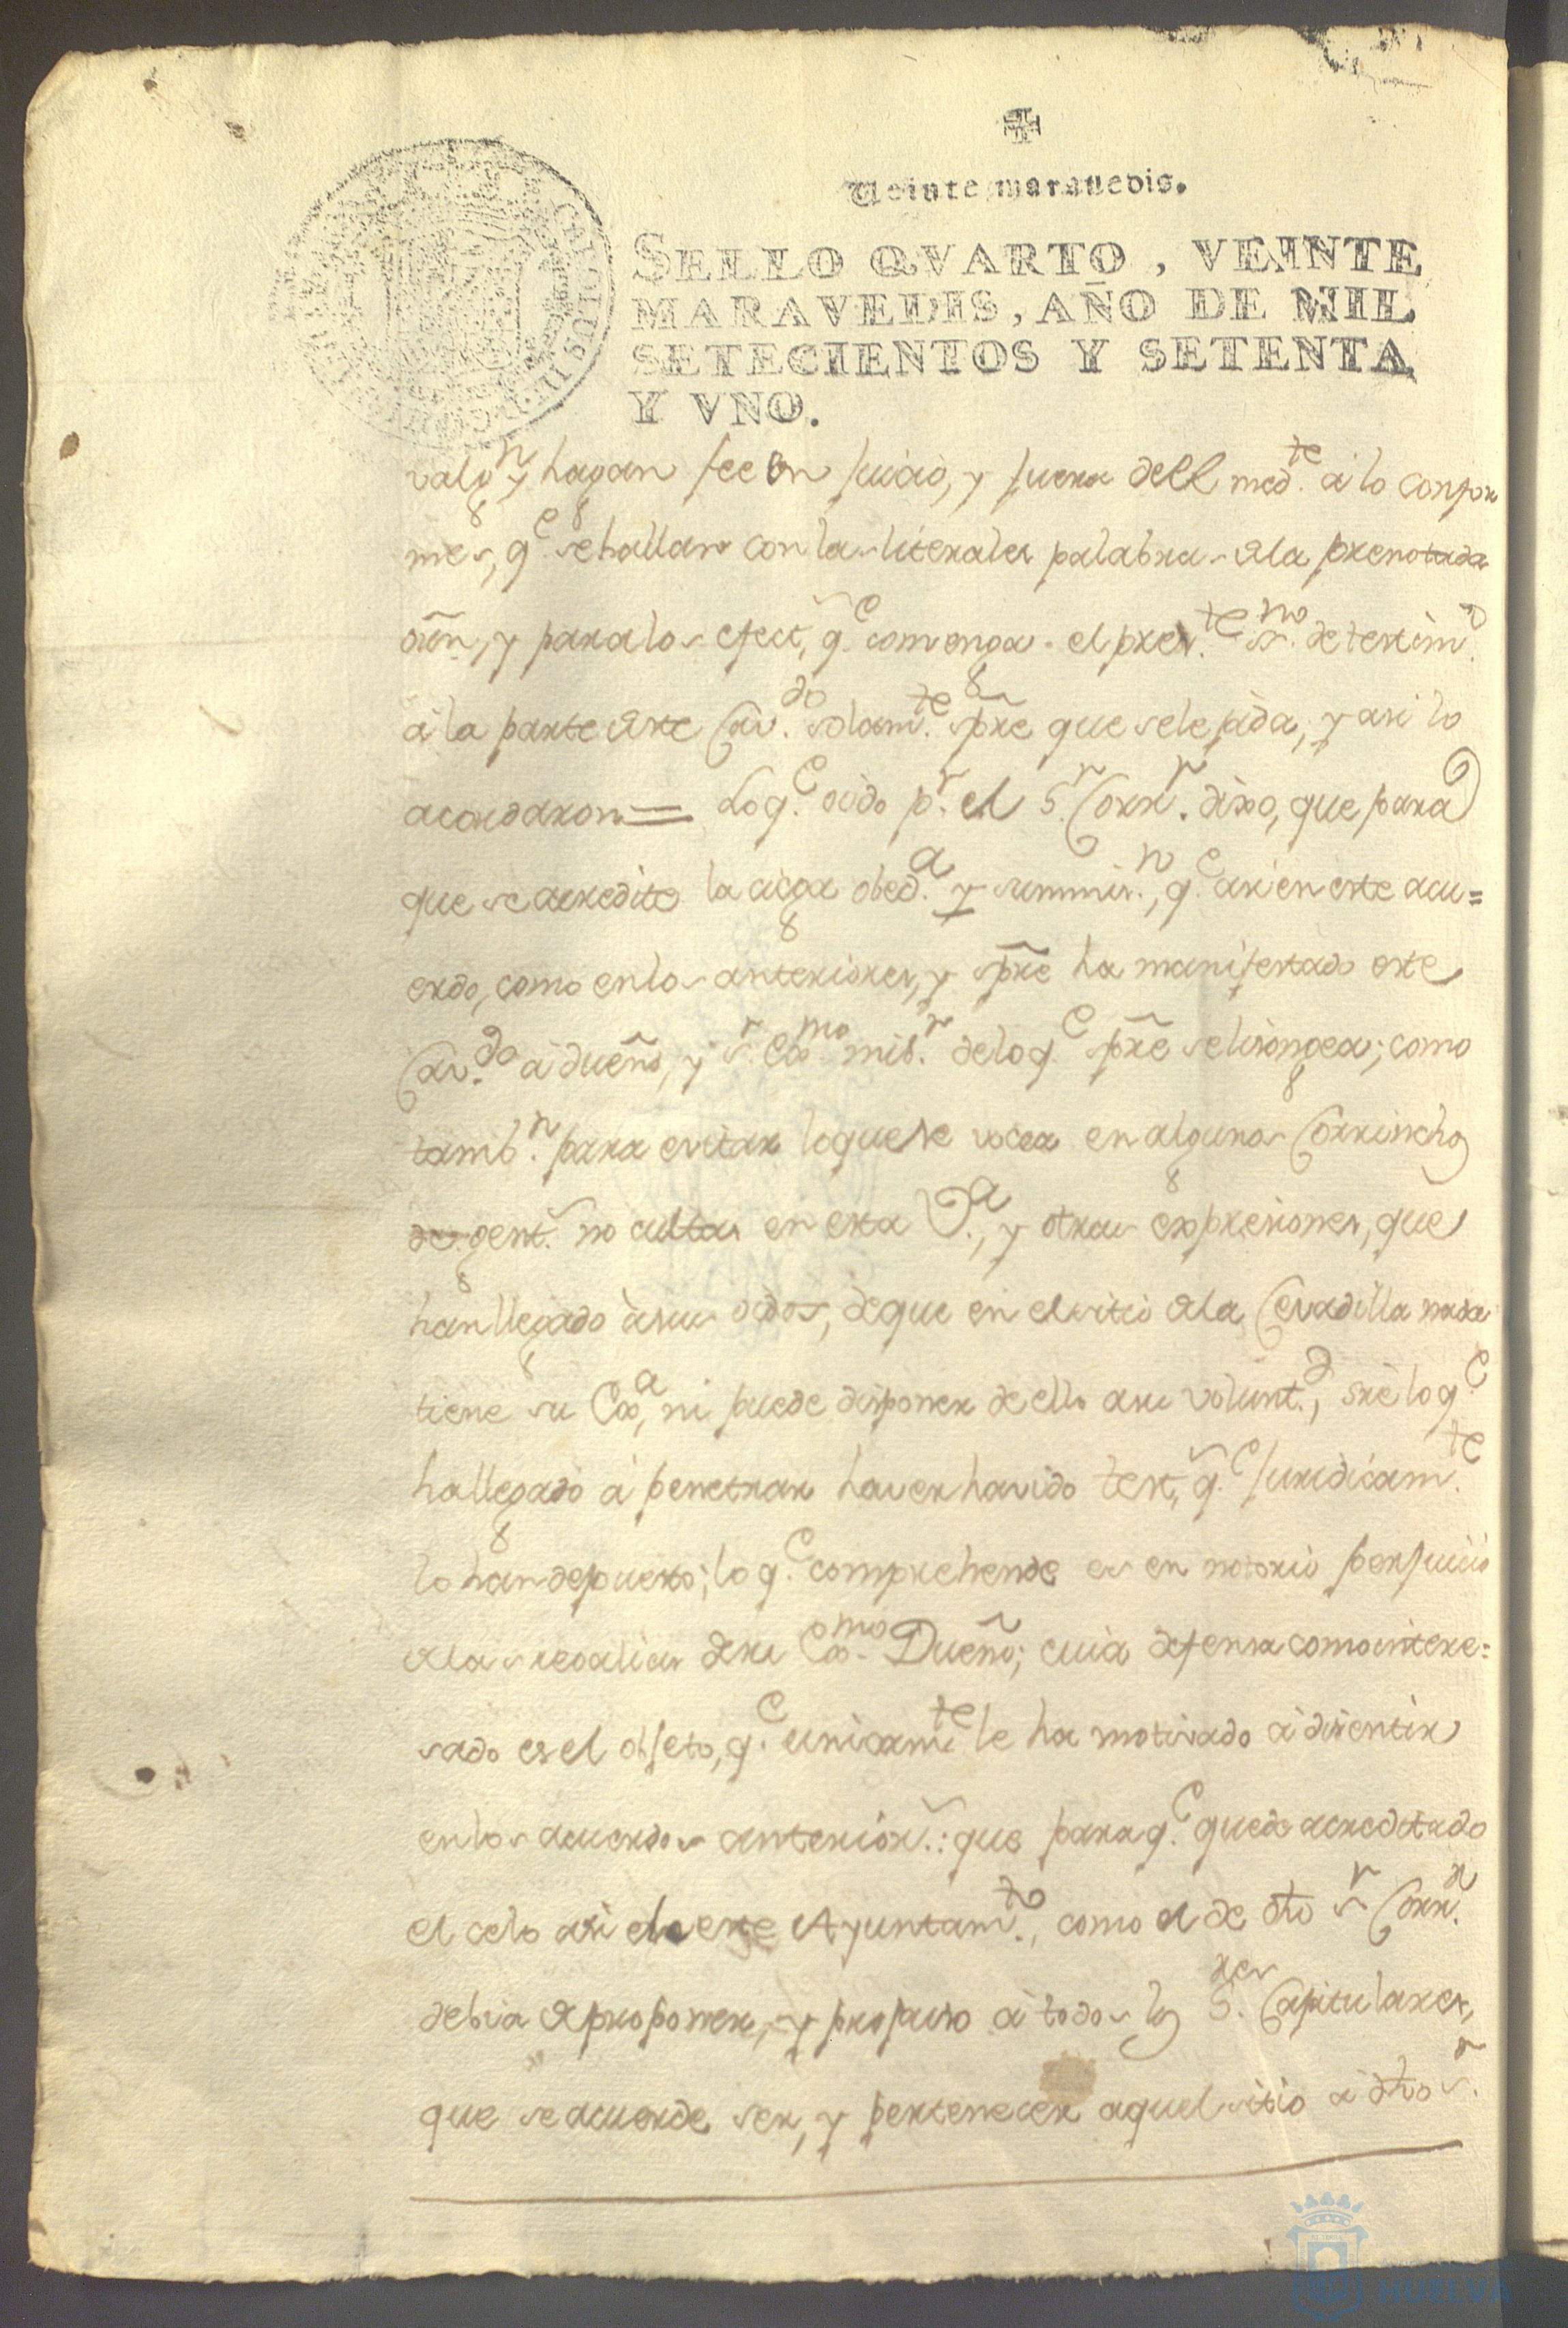 Veinte maravedis.
SELLO QVARTO, VEINTE
MARAVEDIS, AÑO DE MIL
SETECIENTOS Y SETENTA
Y VNO.
valgn y hagan fee en juicio, y fuera dell medte. â lo confor
mes, qe. se hallan con las literales palabras dela prenotada
orn, y para los efect, qe. convenga el preste. ssno. de testimo.
â la parte deste Cavdo. solamte. spre que sele pida, y asi lo
acordaron = Loqe. oido pr. el Sr. Corrr. dixo, que para
que se acredite la ciega obeda. y summisn., qe. asi en este acu=
erdo, como en los anteriores, y spre ha manifestado este
Cavdo. â dueño, y sr. Exmo. mi sr. deloqe. spre se lisongea; como
tambn. para evitar loque se vocea en algunos Corrinchos
de gent. no cultas en esta Va., y otras expresiones, que
han llegado â sus oidos, de que en el sitio dela Cevadilla nada
tiene su Exa, ni puede disponer de ello asu voluntd., sre lo qe.
ha llegado â penetrar haver havido test, qe. juridicamte.
lo han depuesto; lo qe. comprehende es en notorio perjuicio
delas regalias de su Exmo. Dueño; cuia defensa como intere=
sado es el objeto, qe. unicamte le ha motivado â disentir
en los acuerdos anterior.: que para qe. quede acreditado
el celo asi de este Ayuntamto., como el de dho sr Corrr.
debia de proponer, y propuso â todos los Sres. Capitulares,
que se acuerde ser, y pertenecer aquel sitio â dho sr.
HUELVA